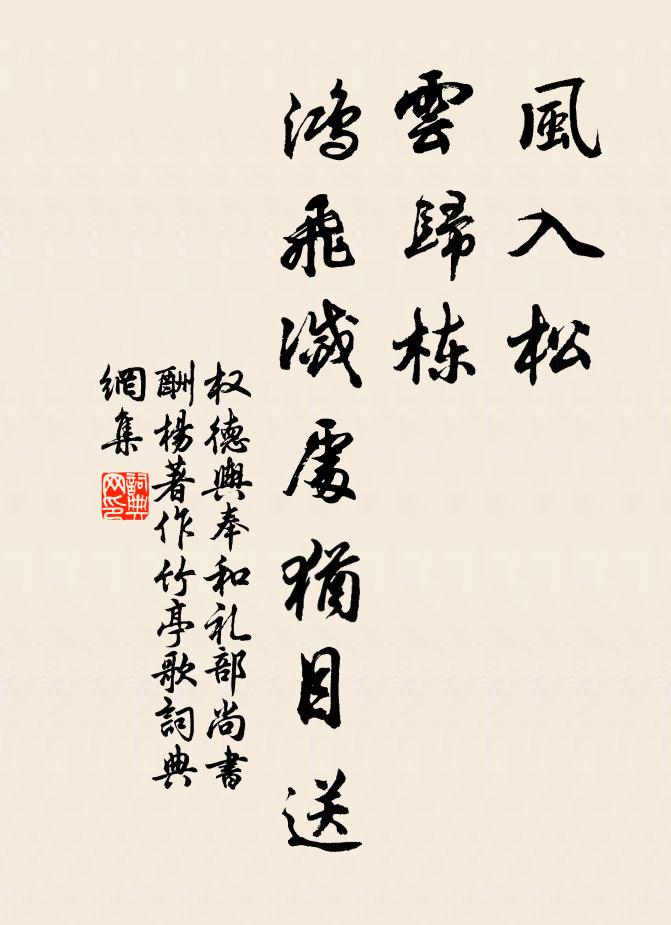 風入松
雲歸栋
鴻飛滅處猶目送
权德輿奉和礼部尚書
酬楊著作竹亭歌詞典
網集
詞典网印